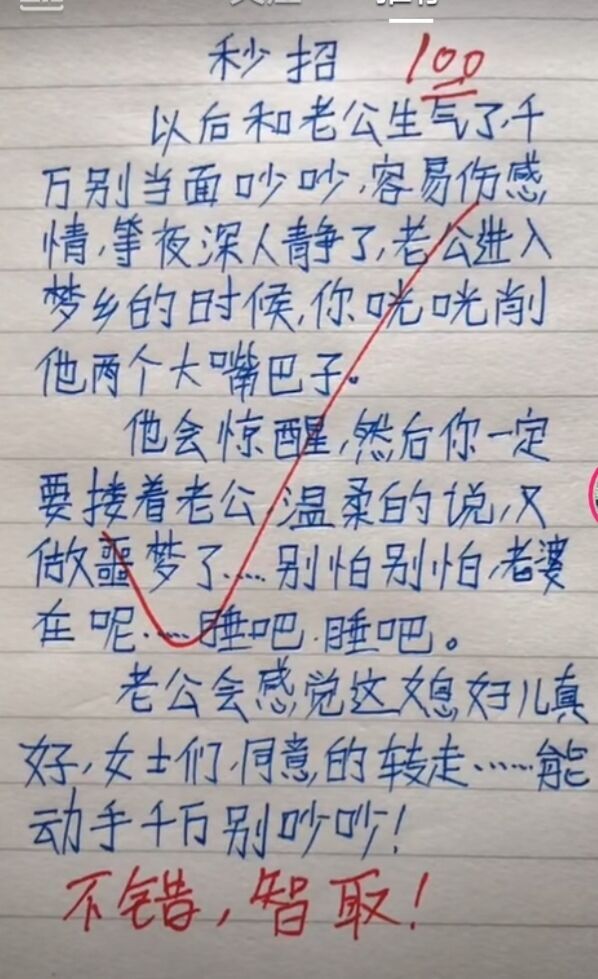 秒招 100
以后和老公生气了,千
万别当面吵吵,容易伤感
情,等夜深人静了,老公进入
梦乡的时候,你咣咣削
他两个大嘴巴子。
他会惊醒,然后你一定
要搂着老公,温柔的说,又
做噩梦了……别怕别怕,老婆
在呢……睡吧.睡吧。
老公会感觉这媳妇儿真
好,女士们,同意的转走……能
动手千万别吵吵!
不错,智取!